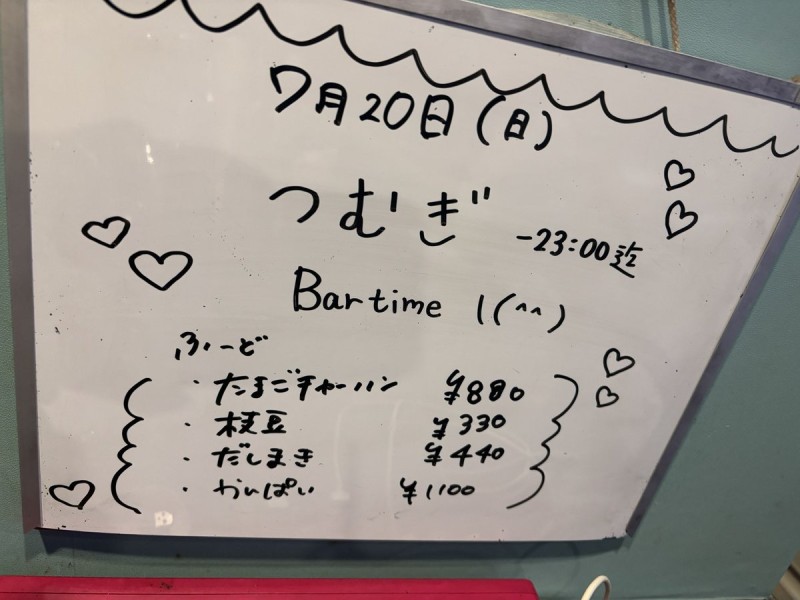 7月20日(日)
つむぎ
-23:00迄
Bartime \(^^)
ふーど
・たまごチャーハン ¥880
・枝豆 ¥330
・だしまき ¥440
・かんぱい ¥1100